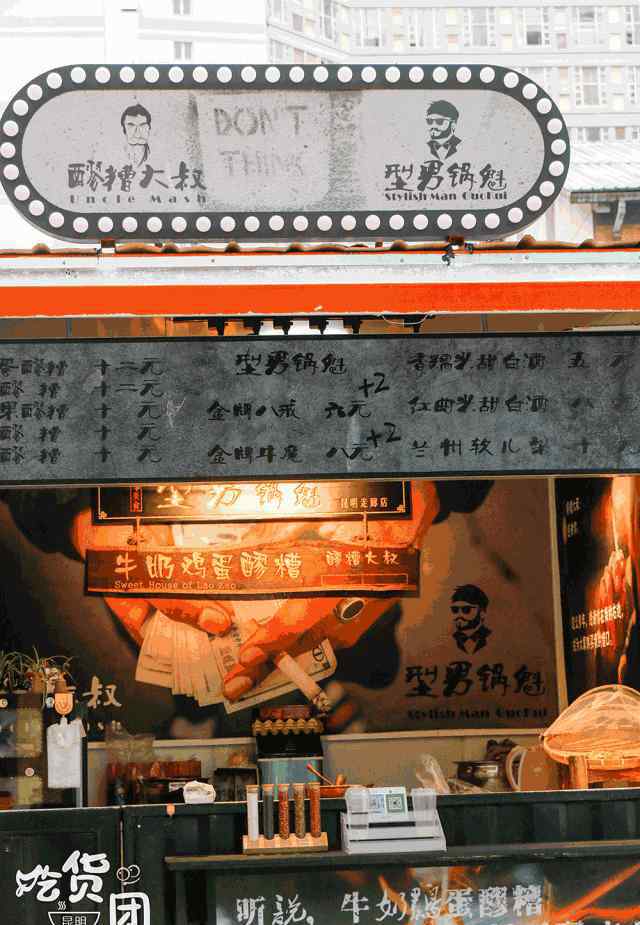 DON'T
THINK
醪糟大叔
Uncle Mash
型男锅魁
Stylish Man GuoKui
蛋醪糟 十二元
醪糟 十二元
果醪糟 十元
醪糟 十元
醪糟 十元
型男锅魁
金牌八戒 六元 +2
金牌牛魔 八元 +2
香糯米甜白酒 五元
红曲米甜白酒 八
兰州软儿梨 十
型男锅魁 昆明走廊店
牛奶鸡蛋醪糟 醪糟大叔
Sweet House of Lao Zao
叔
型男锅魁
Stylish Man GuoKui
吃货
团
昆明
听説，牛奶鸡蛋醪糟